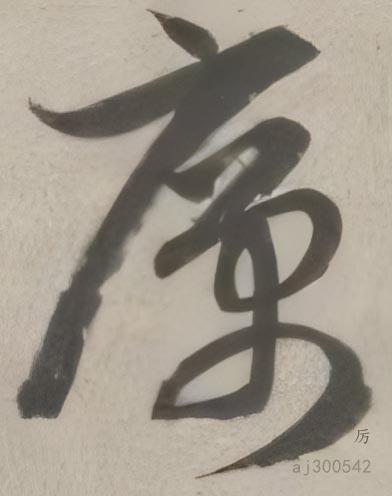 厲
厉
aj300542